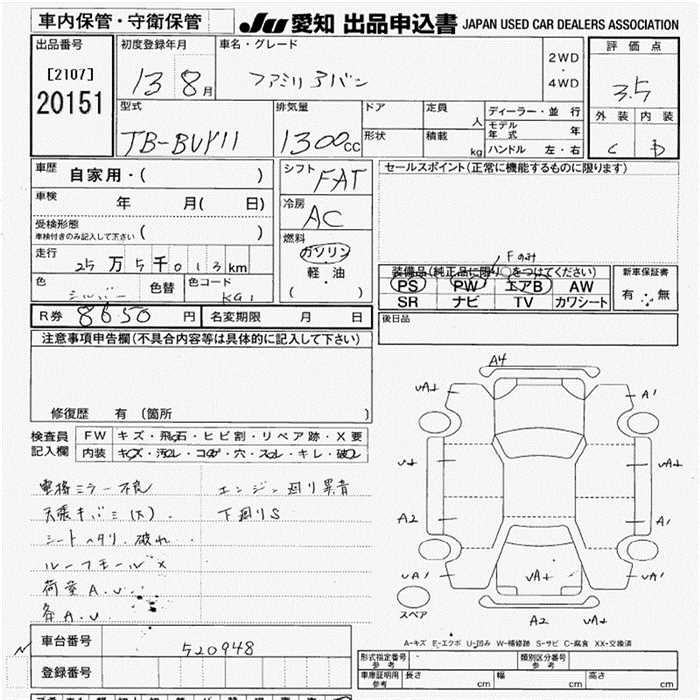 車内保管・守衛保管
JU 愛知 出品申込書 JAPAN USED CAR DEALERS ASSOCIATION
出品番号
[2107]
20151
初度登録年月
13 8月
車名・グレード
ファミリアバン
2WD
・
4WD
評価点
3.5
外装 内装
C D
型式
TB-BVY11
排気量
1300cc
ドア
形状
定員
人
積載
kg
ディーラー・並行
モデル年式 年
ハンドル 左・右
車歴
自家用・( )
車検
年 月( 日)
受検形態
車検付きのみ記入して下さい ( )
走行
25万5千013km
色
シルバー
色替
色コード
KG1
シフト
FAT
冷房
AC
燃料
ガソリン
・
軽・油
( )
セールスポイント(正常に機能するものに限ります)
Fのみ
装備品(純正品に限り○をつけてください)
PS PW エアB AW
SR ナビ TV カワシート
新車保証書
有・無
R券 8650円
名変期限 月 日
後日品
注意事項申告欄(不具合内容等は具体的に記入して下さい)
修復歴 有 (箇所 )
検査員
記入欄
FW キズ・飛石・ヒビ割・リペア跡・X要
内装 キズ・汚レ・コゲ・穴・スレ・キレ・破レ
電格ミラー不良
エンジン廻り異音
天張キバミ(大).
下廻りS
シートヘタリ.破れ
ルーフモールX
荷室A.U
各A.U
A4
UA+
A1
U+
UA+
A2
A1
UA1
UA+
UA1
スペア
A2
UA+
A-キズ E-エクボ U-凹み W-補修跡 S-サビ C-腐食 XX-交換済
車台番号
520948
登録番号
形式指定番号
参考
類別区分番号
参考
車庫証明用
参考
長さ cm
幅 cm
高さ cm